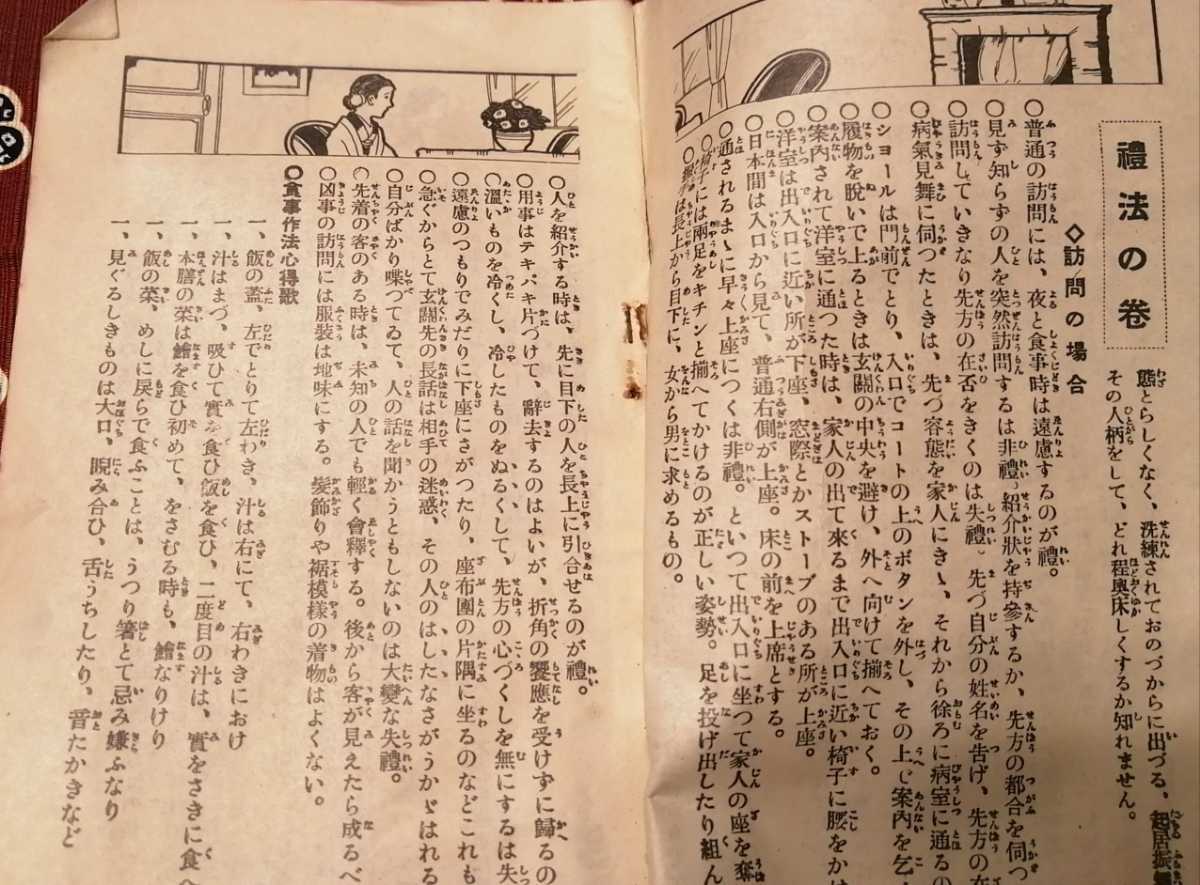 禮法の巻
態とらしくなく、洗練されておのづからに出づる、起居振
その人柄をして、どれ程奥床しくするか知れません。
◇訪問の場合
〇普通の訪問には、夜と食事時は遠慮するのが禮。
〇見ず知らずの人を突然訪問するは非禮。紹介狀を持參するか、先方の都合を伺つ
〇訪問していきなり先方の在否をきくのは失禮。先づ自分の姓名を告げ、先方の在
〇病氣見舞に伺つたときは、先づ容態を家人にきゝ、それから徐ろに病室に通るの
〇ショールは門前でとり、入口でコートの上のボタンを外し、その上で案內を乞
〇履物を脫いで上るときは玄關の中央を避け、外へ向けて揃へておく。
〇案內されて洋室に通つた時は、家人の出て來るまで出入口に近い椅子に腰をかけ
〇洋室は出入口に近い所が下座、窓際とかストーブのある所が上座。
〇日本間は入口から見て、普通右側が上座。床の前を上席とする。
〇通されるまゝに早々上座につくは非禮。といつて出入口に坐つて家人の座を奪
〇椅子には兩足をキチンと揃へてかけるのが正しい姿勢。足を投げ出したり組ん
〇握手は長上から目下に、女から男に求めるもの。
〇人を紹介する時は、先に目下の人を長上に引合せるのが禮。
〇用事はテキパキ片づけて、辭去するのはよいが、折角の饗應を受けずに歸るの
〇溫いものを冷くし、冷したものをぬるくして、先方の心づくしを無にするは失
〇遠慮のつもりでみだりに下座にさがつたり、座布團の片隅に坐るのなどこれも
〇急ぐからとて玄關先の長話は相手の迷惑、その人のはしたなさがうかゞはれる
〇自分ばかり喋つてゐて、人の話を聞かうともしないのは大變な失禮。
〇先着の客のある時は、未知の人でも輕く會釋する。後から客が見えたら成るべ
〇凶事の訪問には服裝は地味にする。髮飾りや裾模樣の着物はよくない。
◎食事作法心得歌
一、飯の蓋、左でとりて左わき、汁は右にて、右わきにおけ
一、汁はまづ、吸ひて實を食ひ飯を食ひ、二度目の汁は、實をさきに食へ
一、本膳の菜は鱠を食ひ初めて、をさむる時も、鱠なりけり
一、飯の菜、めしに戾らで食ふことは、うつり箸とて忌み嫌ふなり
一、見ぐるしきものは大口、睨み合ひ、舌うちしたり、音たかきなど